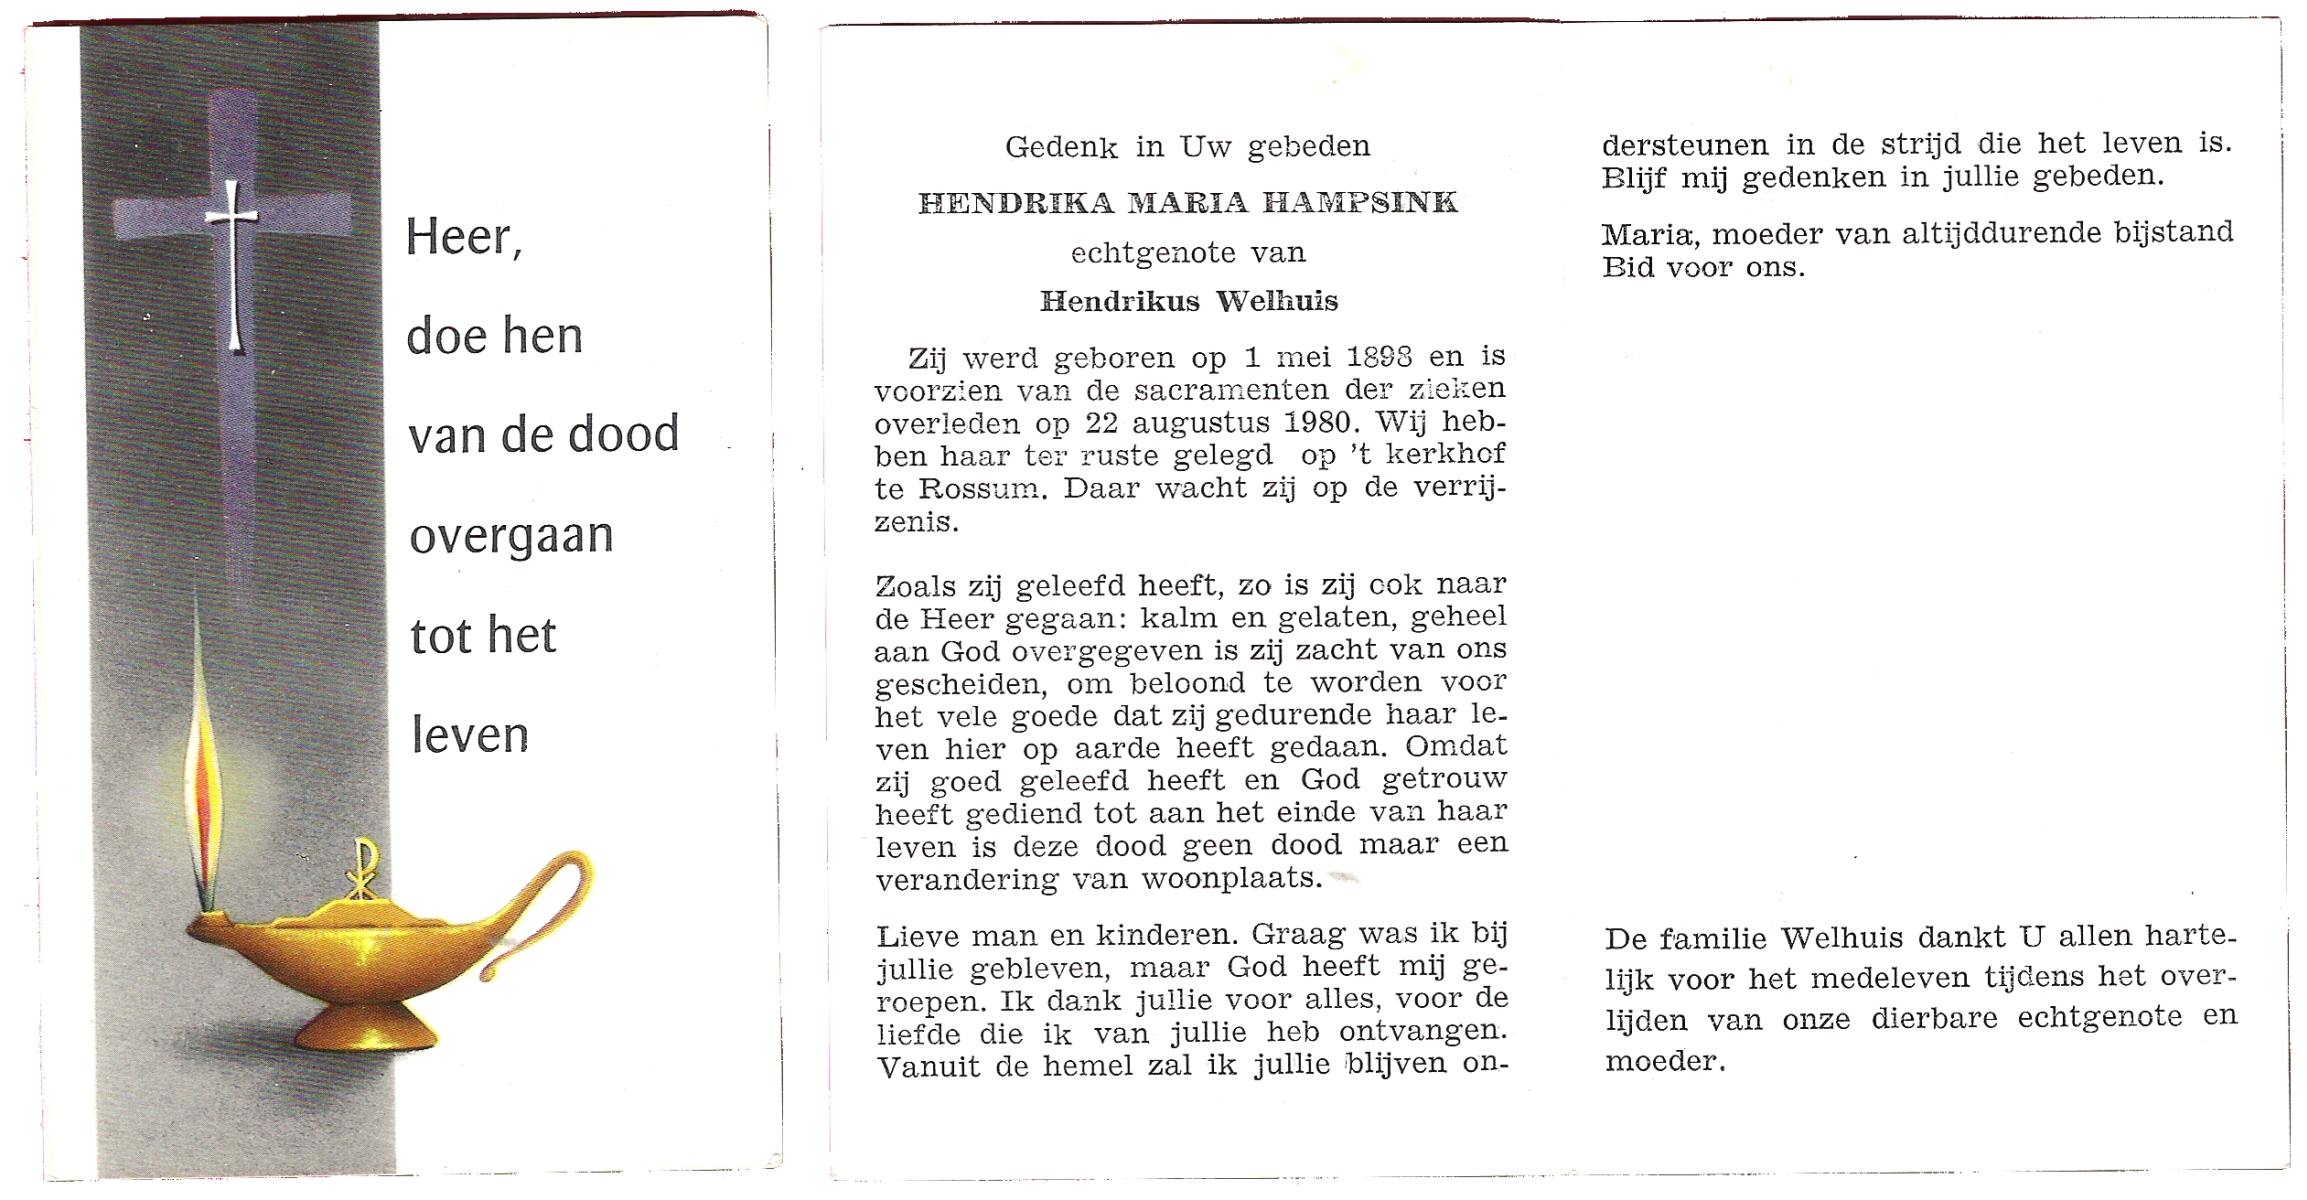 Heer,
doe hen
van de dood
overgaan
tot het
leven
Gedenk in Uw gebeden
HENDRIKA MARIA HAMPSINK
echtgenote van
Hendrikus Welhuis
Zij werd geboren op 1 mei 1898 en is
voorzien van de sacramenten der zieken
overleden op 22 augustus 1980. Wij heb-
ben haar ter ruste gelegd op 't kerkhof
te Rossum. Daar wacht zij op de verrij-
zenis.
Zoals zij geleefd heeft, zo is zij ook naar
de Heer gegaan: kalm en gelaten, geheel
aan God overgegeven is zij zacht van ons
gescheiden, om beloond te worden voor
het vele goede dat zij gedurende haar le-
ven hier op aarde heeft gedaan. Omdat
zij goed geleefd heeft en God getrouw
heeft gediend tot aan het einde van haar
leven is deze dood geen dood maar een
verandering van woonplaats.
Lieve man en kinderen. Graag was ik bij
jullie gebleven, maar God heeft mij ge-
roepen. Ik dank jullie voor alles, voor de
liefde die ik van jullie heb ontvangen.
Vanuit de hemel zal ik jullie blijven on-
dersteunen in de strijd die het leven is.
Blijf mij gedenken in jullie gebeden.
Maria, moeder van altijddurende bijstand
Bid voor ons.
De familie Welhuis dankt U allen harte-
lijk voor het medeleven tijdens het over-
lijden van onze dierbare echtgenote en
moeder.